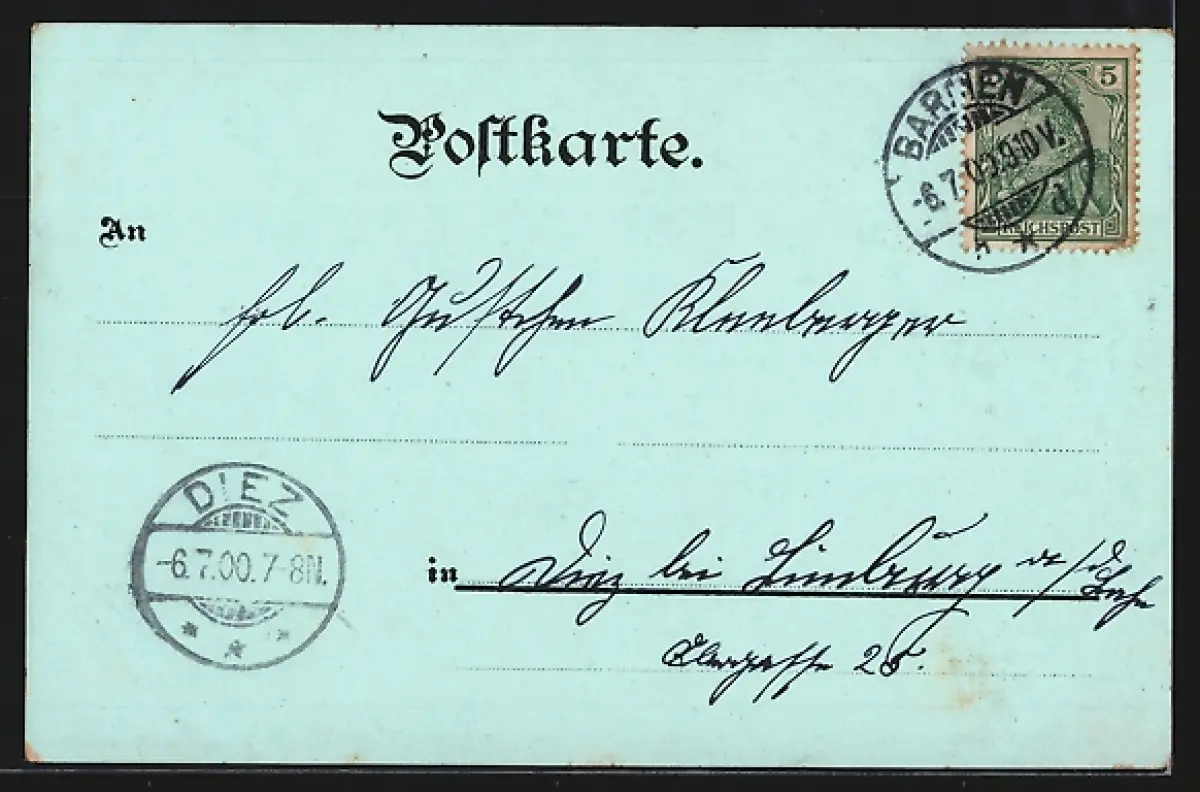 Postkarte.
5
REICHSPOST
BARMEN
-6.7.00.9-10V.
* d
An
Frl. Gustchen Kleeberger
DIEZ
-6.7.00.7-8N.
* * *
in Diez bei Limburg a/d Lahn
25.